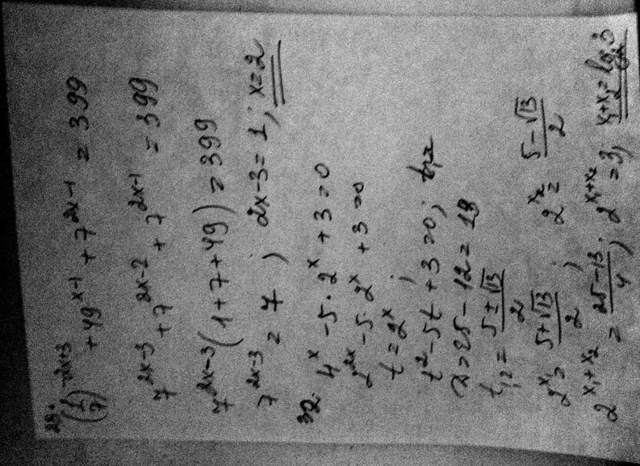 284
(1/7)^(-2x+3) + 49^(x-1) + 7^(2x-1) = 399
7^(2x-3) + 7^(2x-2) + 7^(2x-1) = 399
7^(2x-3) (1+7+49) = 399
7^(2x-3) = 7; 2x-3=1; x=2
32. 4^x - 5·2^x + 3 = 0
2^(2x) - 5·2^x + 3 = 0
t = 2^x;
t² - 5t + 3 = 0;
D = 25 - 12 = 13
t₁,₂ = (5±√13)/2
2^(x₁) = (5+√13)/2; 2^(x₂) = (5-√13)/2
2^(x₁+x₂) = (25-13)/4; 2^(x₁+x₂) = 3; x₁+x₂ = log₂3